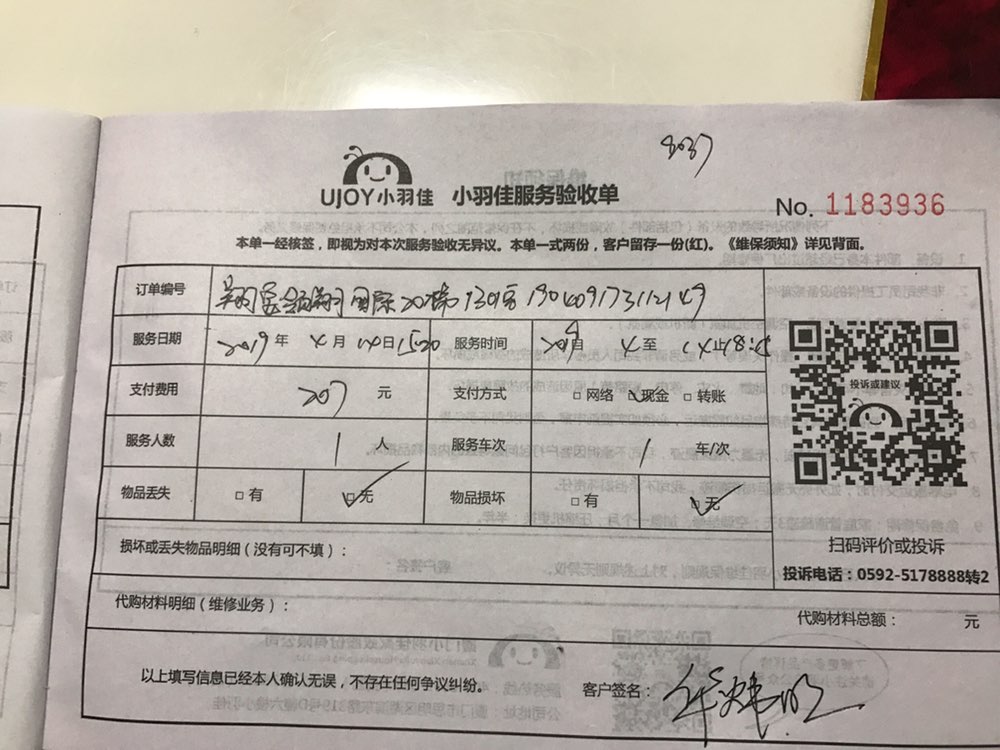 8037
UJOY小羽佳 小羽佳服务验收单
No. 1183936
本单一经核签，即视为对本次服务验收无异议。本单一式两份，客户留存一份(红)。《维保须知》详见背面。
订单编号 国际20梯1301室 190409173112149
服务日期 2019年 4月 14日15:20 服务时间 4至
支付费用 207 元 支付方式 □网络 现金 □转账
服务人数 1 人 服务车次 1 车/次
物品丢失 □有 ☑无 物品损坏 □有 ☑无
投诉或建议
损坏或丢失物品明细（没有可不填）：
扫码评价或投诉
投诉电话：0592-5178888转2
代购材料明细（维修业务）：
代购材料总额： 元
以上填写信息已经本人确认无误，不存在任何争议纠纷。 客户签名：